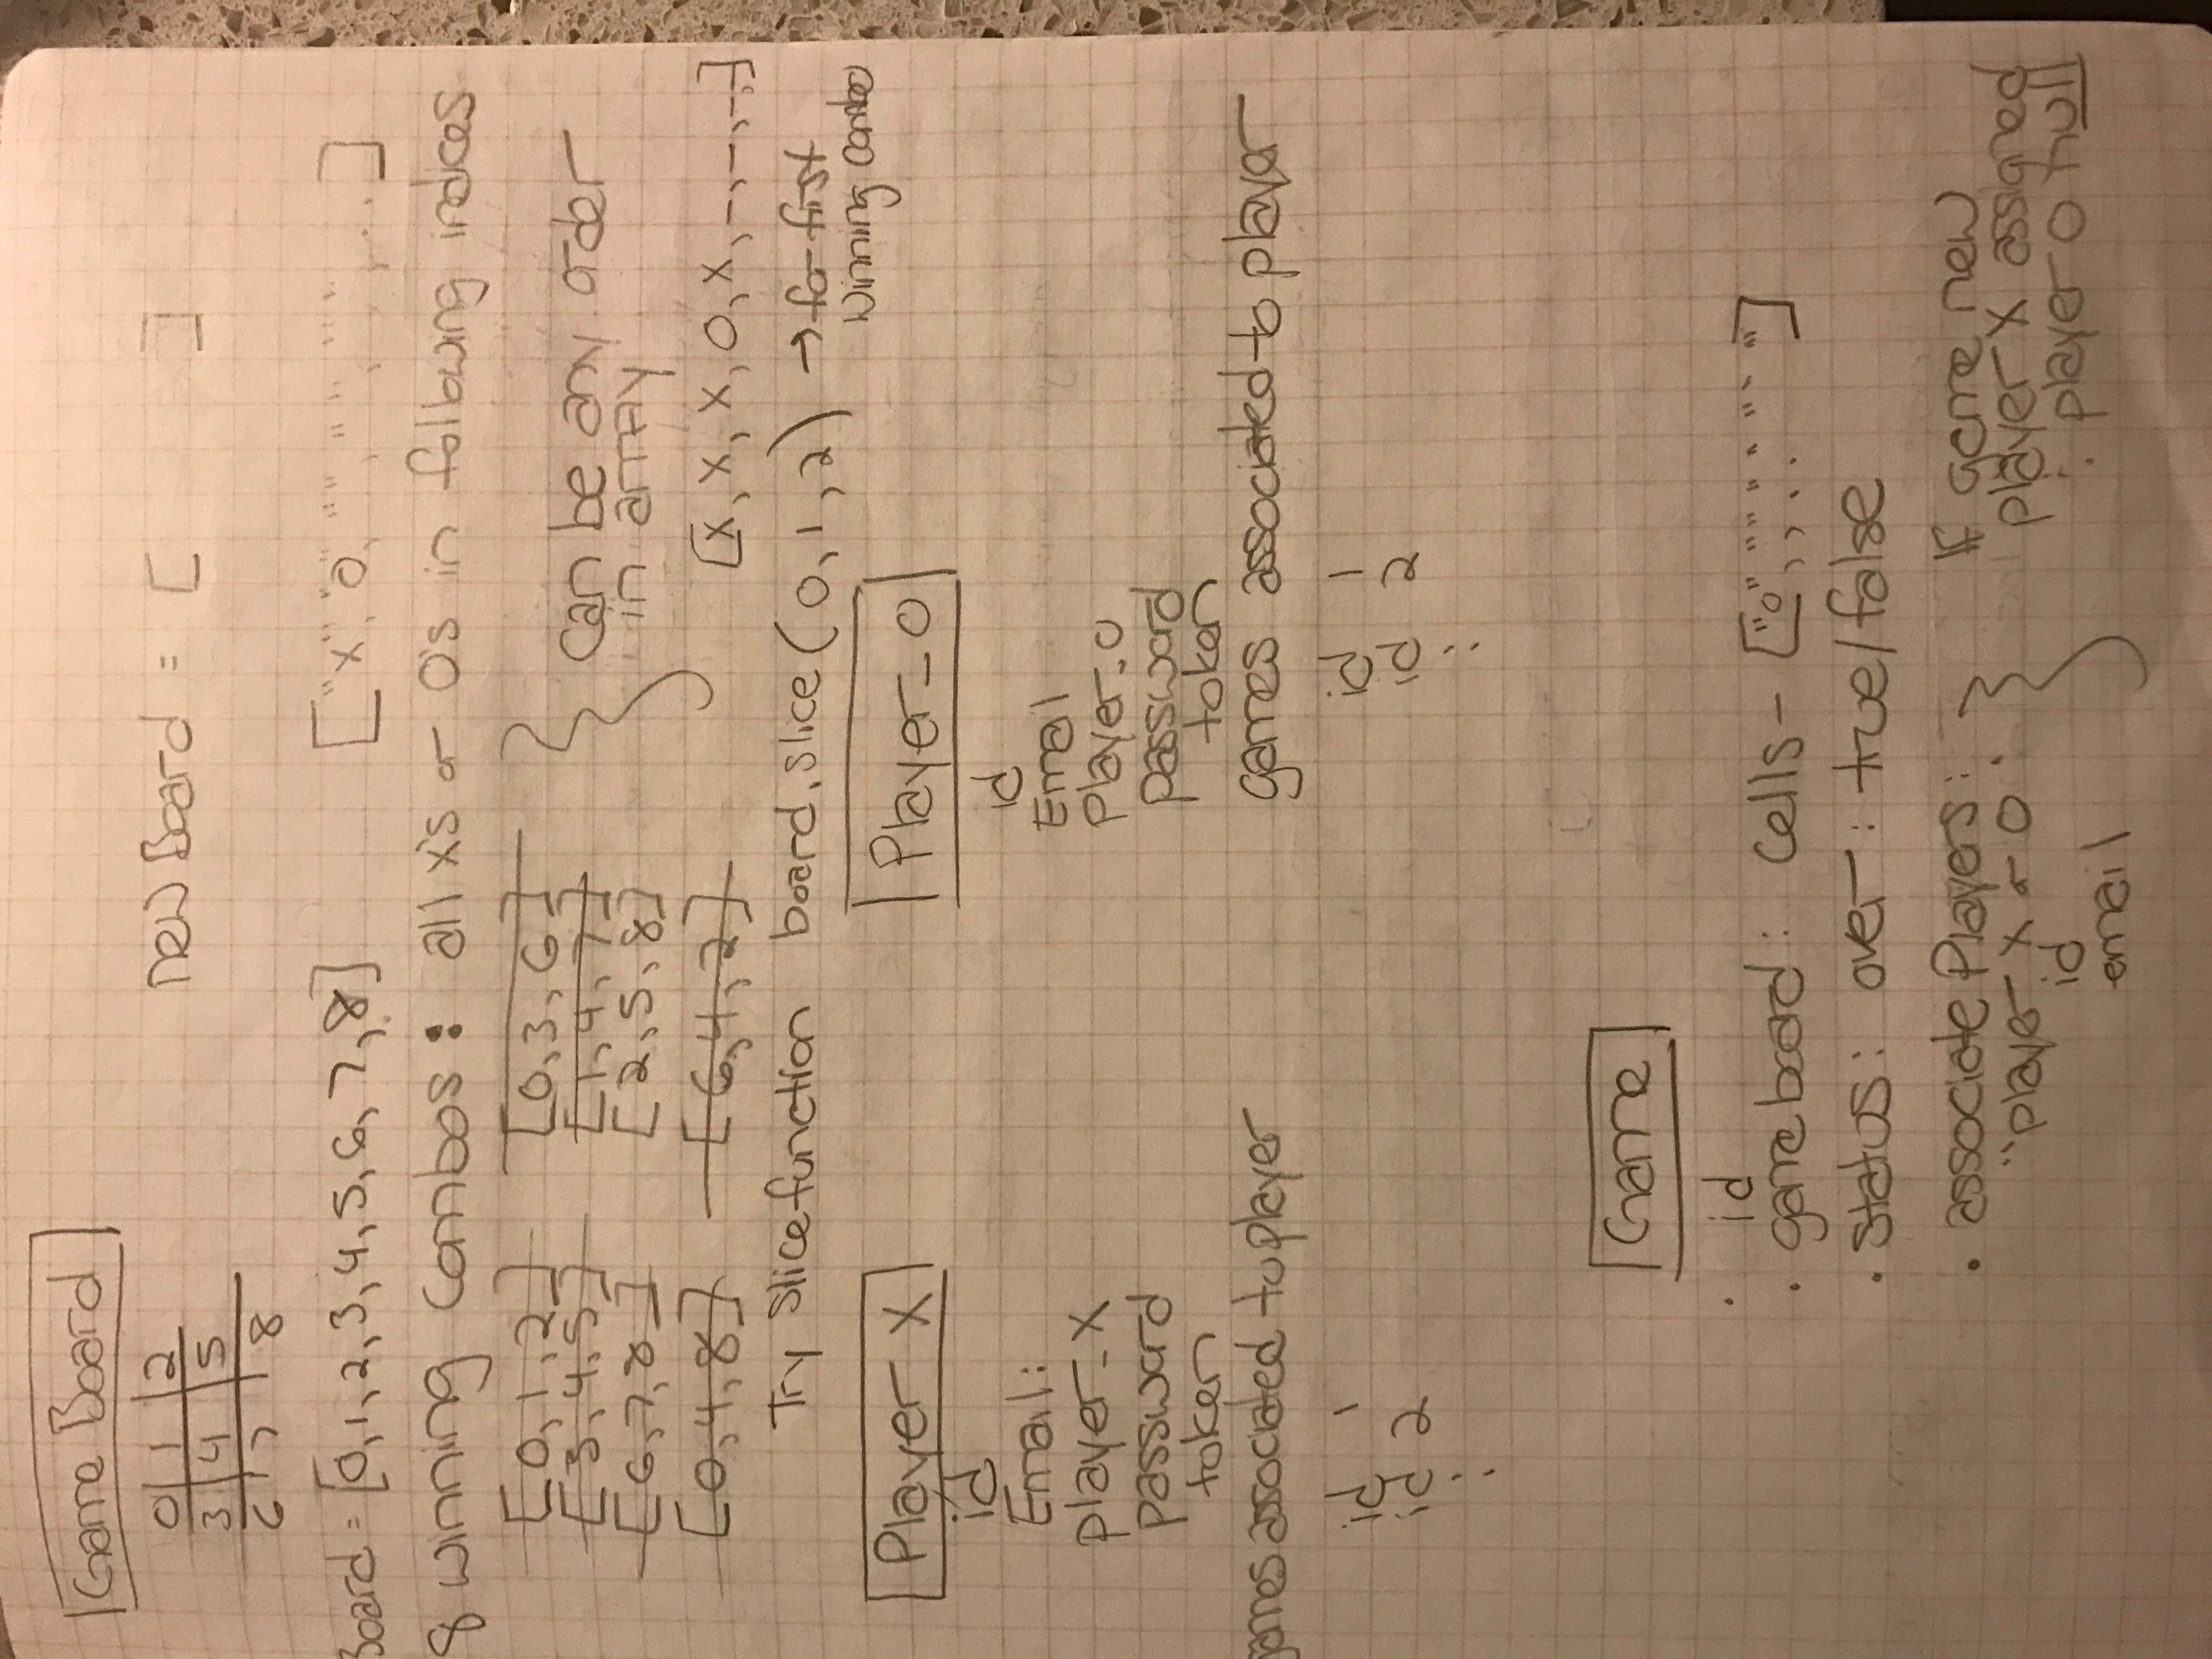 Game Board
0 1 2
3 4 5
6 7 8
new Board = [ ]
Board = [0, 1, 2, 3, 4, 5, 6, 7, 8]
["x", "0", "", "", "", ...]
8 winning combos: all x's or 0's in following indices
[0, 1, 2] [0, 3, 6]
[3, 4, 5] [1, 4, 7]
[6, 7, 8] [2, 5, 8]
[0, 4, 8] [6, 4, 2]
can be any order
in array
[x, x, x, 0, x, -, -, -, -]
Try slice function board.slice(0, 1, 2) → for first
winning combo
Player X
id
Email:
player_x
password
token
games associated to player
id 1
id 2
:
Player_0
id
Email
Player_0
password
token
games associated to player
id 1
id 2
:
Game
• id
• game board: Cells - ["0", "", "" . . "" "" ""]
• status: over: true/false
• associate Players:
"player x or 0
id
email
If game new
player X assigned
: player 0 null